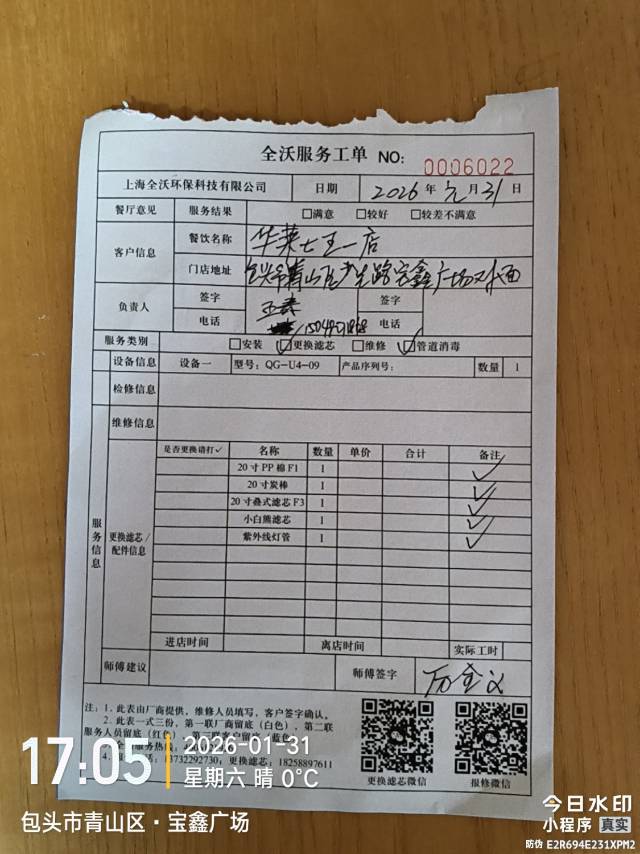 全沃服务工单 NO: 0006022
上海全沃环保科技有限公司 日期 2026年元月31日
餐厅意见 服务结果 □满意 □较好 □较差不满意
客户信息 餐饮名称 华莱士王一店
门店地址 包头市青山区少先路宝鑫广场对面
负责人 签字 签字
电话 电话
服务类别 □安装 ☑更换滤芯 □维修 ☑管道消毒
设备信息 设备一 型号: QG-U4-09 产品序列号: 数量 1
检修信息
维修信息
服务信息
更换滤芯/配件信息
是否更换请打✓ 名称 数量 单价 合计 备注
20寸PP棉F1 1 ✓
20寸炭棒 1 ✓
20寸叠式滤芯F3 1 ✓
小白熊滤芯 1 ✓
紫外线灯管 1 ✓
进店时间 离店时间 实际工时
师傅建议 师傅签字
注: 1. 此表由厂商提供, 维修人员填写, 客户签字确认。
2. 此表一式三份, 第一联厂商留底(白色), 第二联
服务人员留底(红色), 第三联客户留底(蓝色)
服务热线:
4. 13732292730; 更换滤芯: 18258897611
更换滤芯微信 报修微信
17:05 2026-01-31
星期六 晴 0℃
包头市青山区·宝鑫广场
今日水印
小程序 真实
防伪 E2R694E231XPM2